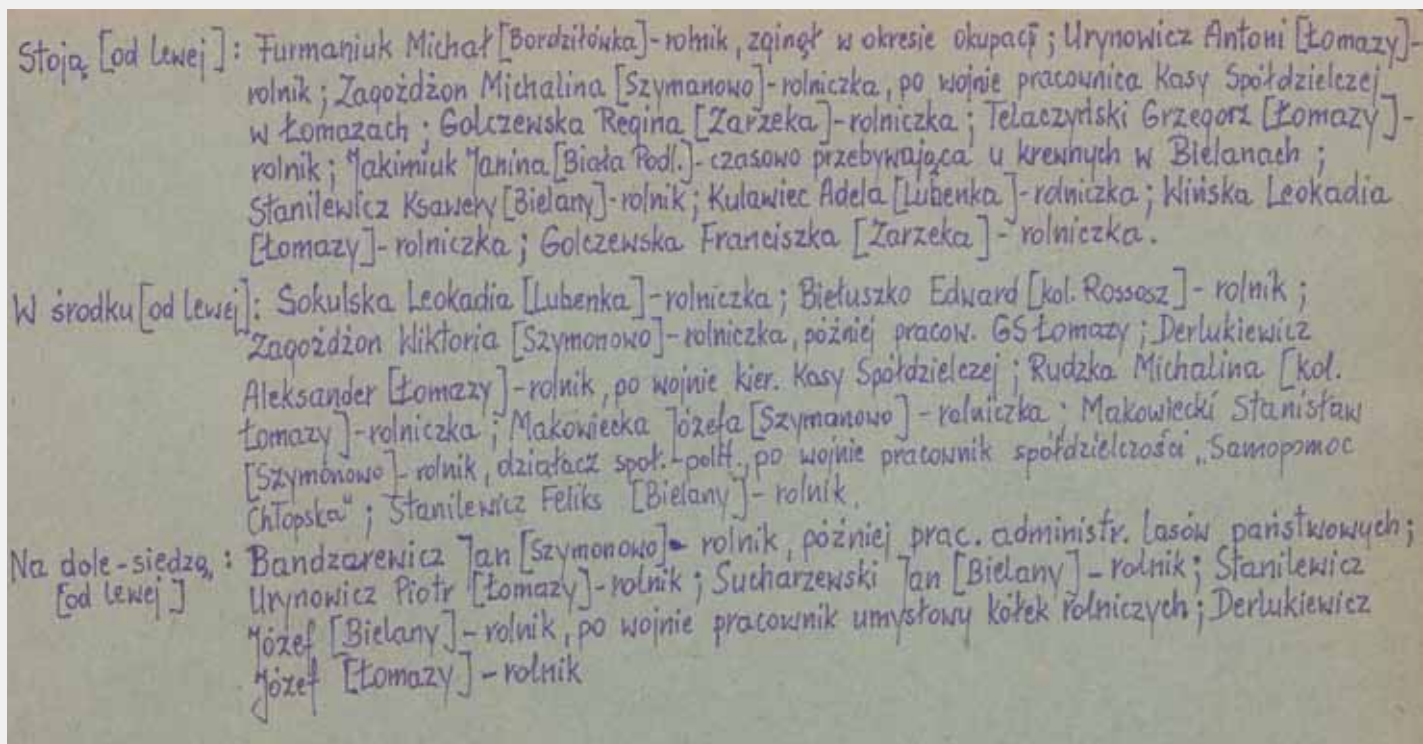 Stoją [od lewej]: Furmaniuk Michał [Bordziłówka]-rolnik, zginął w okresie okupacji; Urynowicz Antoni [Łomazy]-
rolnik; Zagożdżon Michalina [Szymanowo]-rolniczka, po wojnie pracownica Kasy Spółdzielczej
w Łomazach; Golczewska Regina [Zarzeka]-rolniczka; Telaczyński Grzegorz [Łomazy]-
rolnik; Jakimiuk Janina [Biała Podl.]-czasowo przebywająca u krewnych w Bielanach;
Stanilewicz Ksawery [Bielany]-rolnik; Kulawiec Adela [Lubenka]-rolniczka; Wińska Leokadia
[Łomazy]-rolniczka; Golczewska Franciszka [Zarzeka]-rolniczka.
W środku [od lewej]: Sokulska Leokadia [Lubenka]-rolniczka; Biełuszko Edward [kol. Rossosz]-rolnik;
Zagożdżon Wiktoria [Szymonowo]-rolniczka, później pracow. GS Łomazy; Derlukiewicz
Aleksander [Łomazy]-rolnik, po wojnie kier. Kasy Spółdzielczej; Rudzka Michalina [kol.
Łomazy]-rolniczka; Makowiecka Józefa [Szymanowo]-rolniczka; Makowiecki Stanisław
[Szymonowo]-rolnik, działacz społ.-polit., po wojnie pracownik spółdzielczości „Samopomoc
Chłopska"; Stanilewicz Feliks [Bielany]-rolnik.
Na dole-siedzą: Bandzarewicz Jan [Szymonowo]-rolnik, później prac. administr. Lasów państwowych;
[od lewej] Urynowicz Piotr [Łomazy]-rolnik; Sucharzewski Jan [Bielany]-rolnik; Stanilewicz
Józef [Bielany]-rolnik, po wojnie pracownik umysłowy kółek rolniczych; Derlukiewicz
Józef [Łomazy]-rolnik